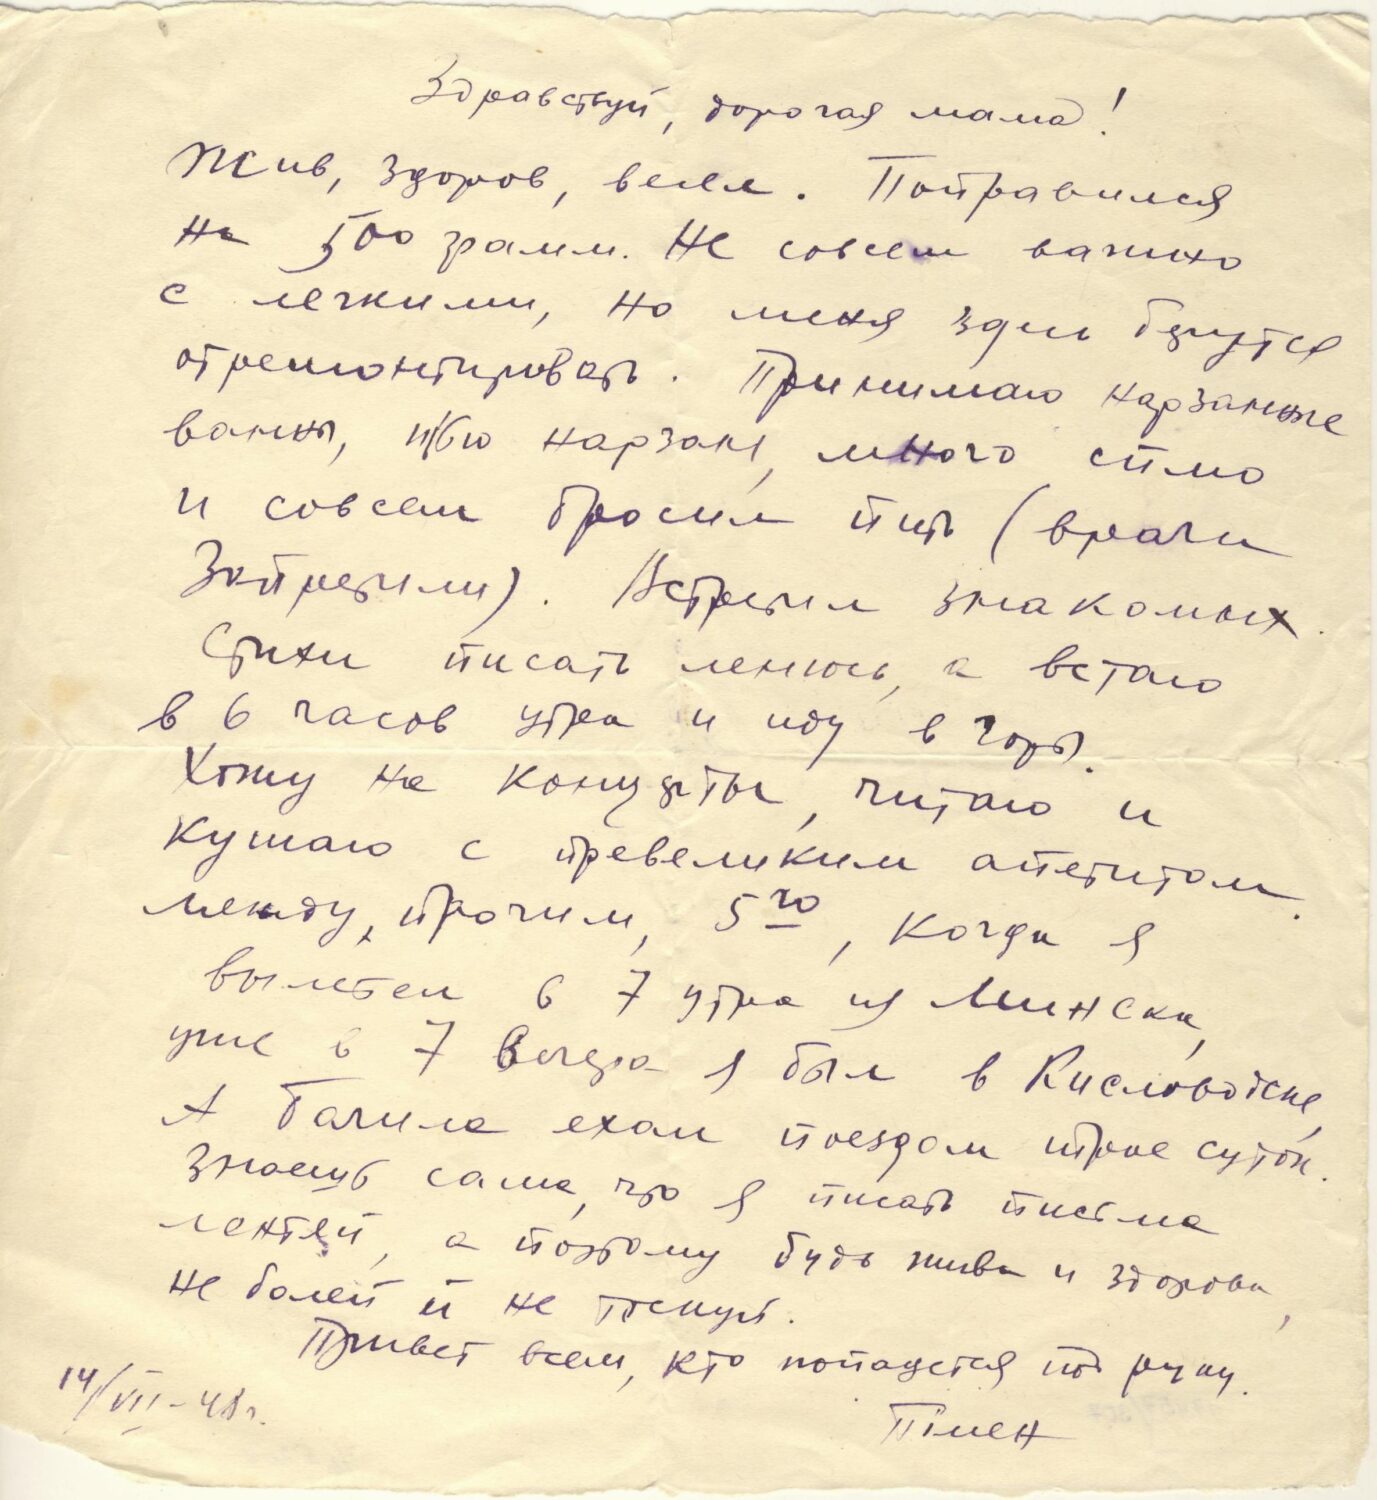 Здравствуй, дорогая мама!
Жив, здоров, весел. Поправился
на 500 грамм. Не совсем важно
с легкими, но меня здесь берутся
отремонтировать. Принимаю нарзанные
ванны, пью нарзан, много сплю
и совсем бросил пить (врачи
запретили). Встретил знакомых.
Стихи писать ленюсь, а встаю
в 6 часов утра и иду в горы.
Хожу на концерты, читаю и
кушаю с превеликим апетитом.
между, прочим, 5го, когда я
вылетел в 7 утра из Минска,
уже в 7 вечера я был в Кисловодске,
А Бачила ехал поездом трое суток.
Знаешь сама, что я писать письма
лентяй, а поэтому будь жива и здорова,
не болей и не тоскуй.
Привет всем, кто попадется под руку.
14/VII-48 г.
Пімен